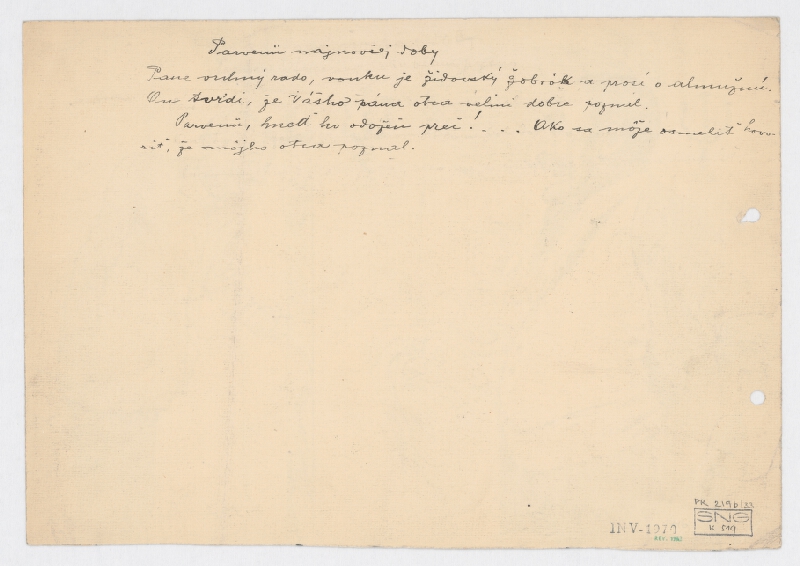 Parvenü najnovšej doby
Pane vrchný rado, vonku je židovský žobrák a prosí o almužnú.
On tvrdí, že Vášho pána otca velmi dobre poznal.
Parvenü, hneď ho odožeň preč! . . . Ako sa môže osmeliť hovo-
riť, že môjho otca poznal.
PK 219b/33
SNG
K 519
INV-1979
REV. 1982